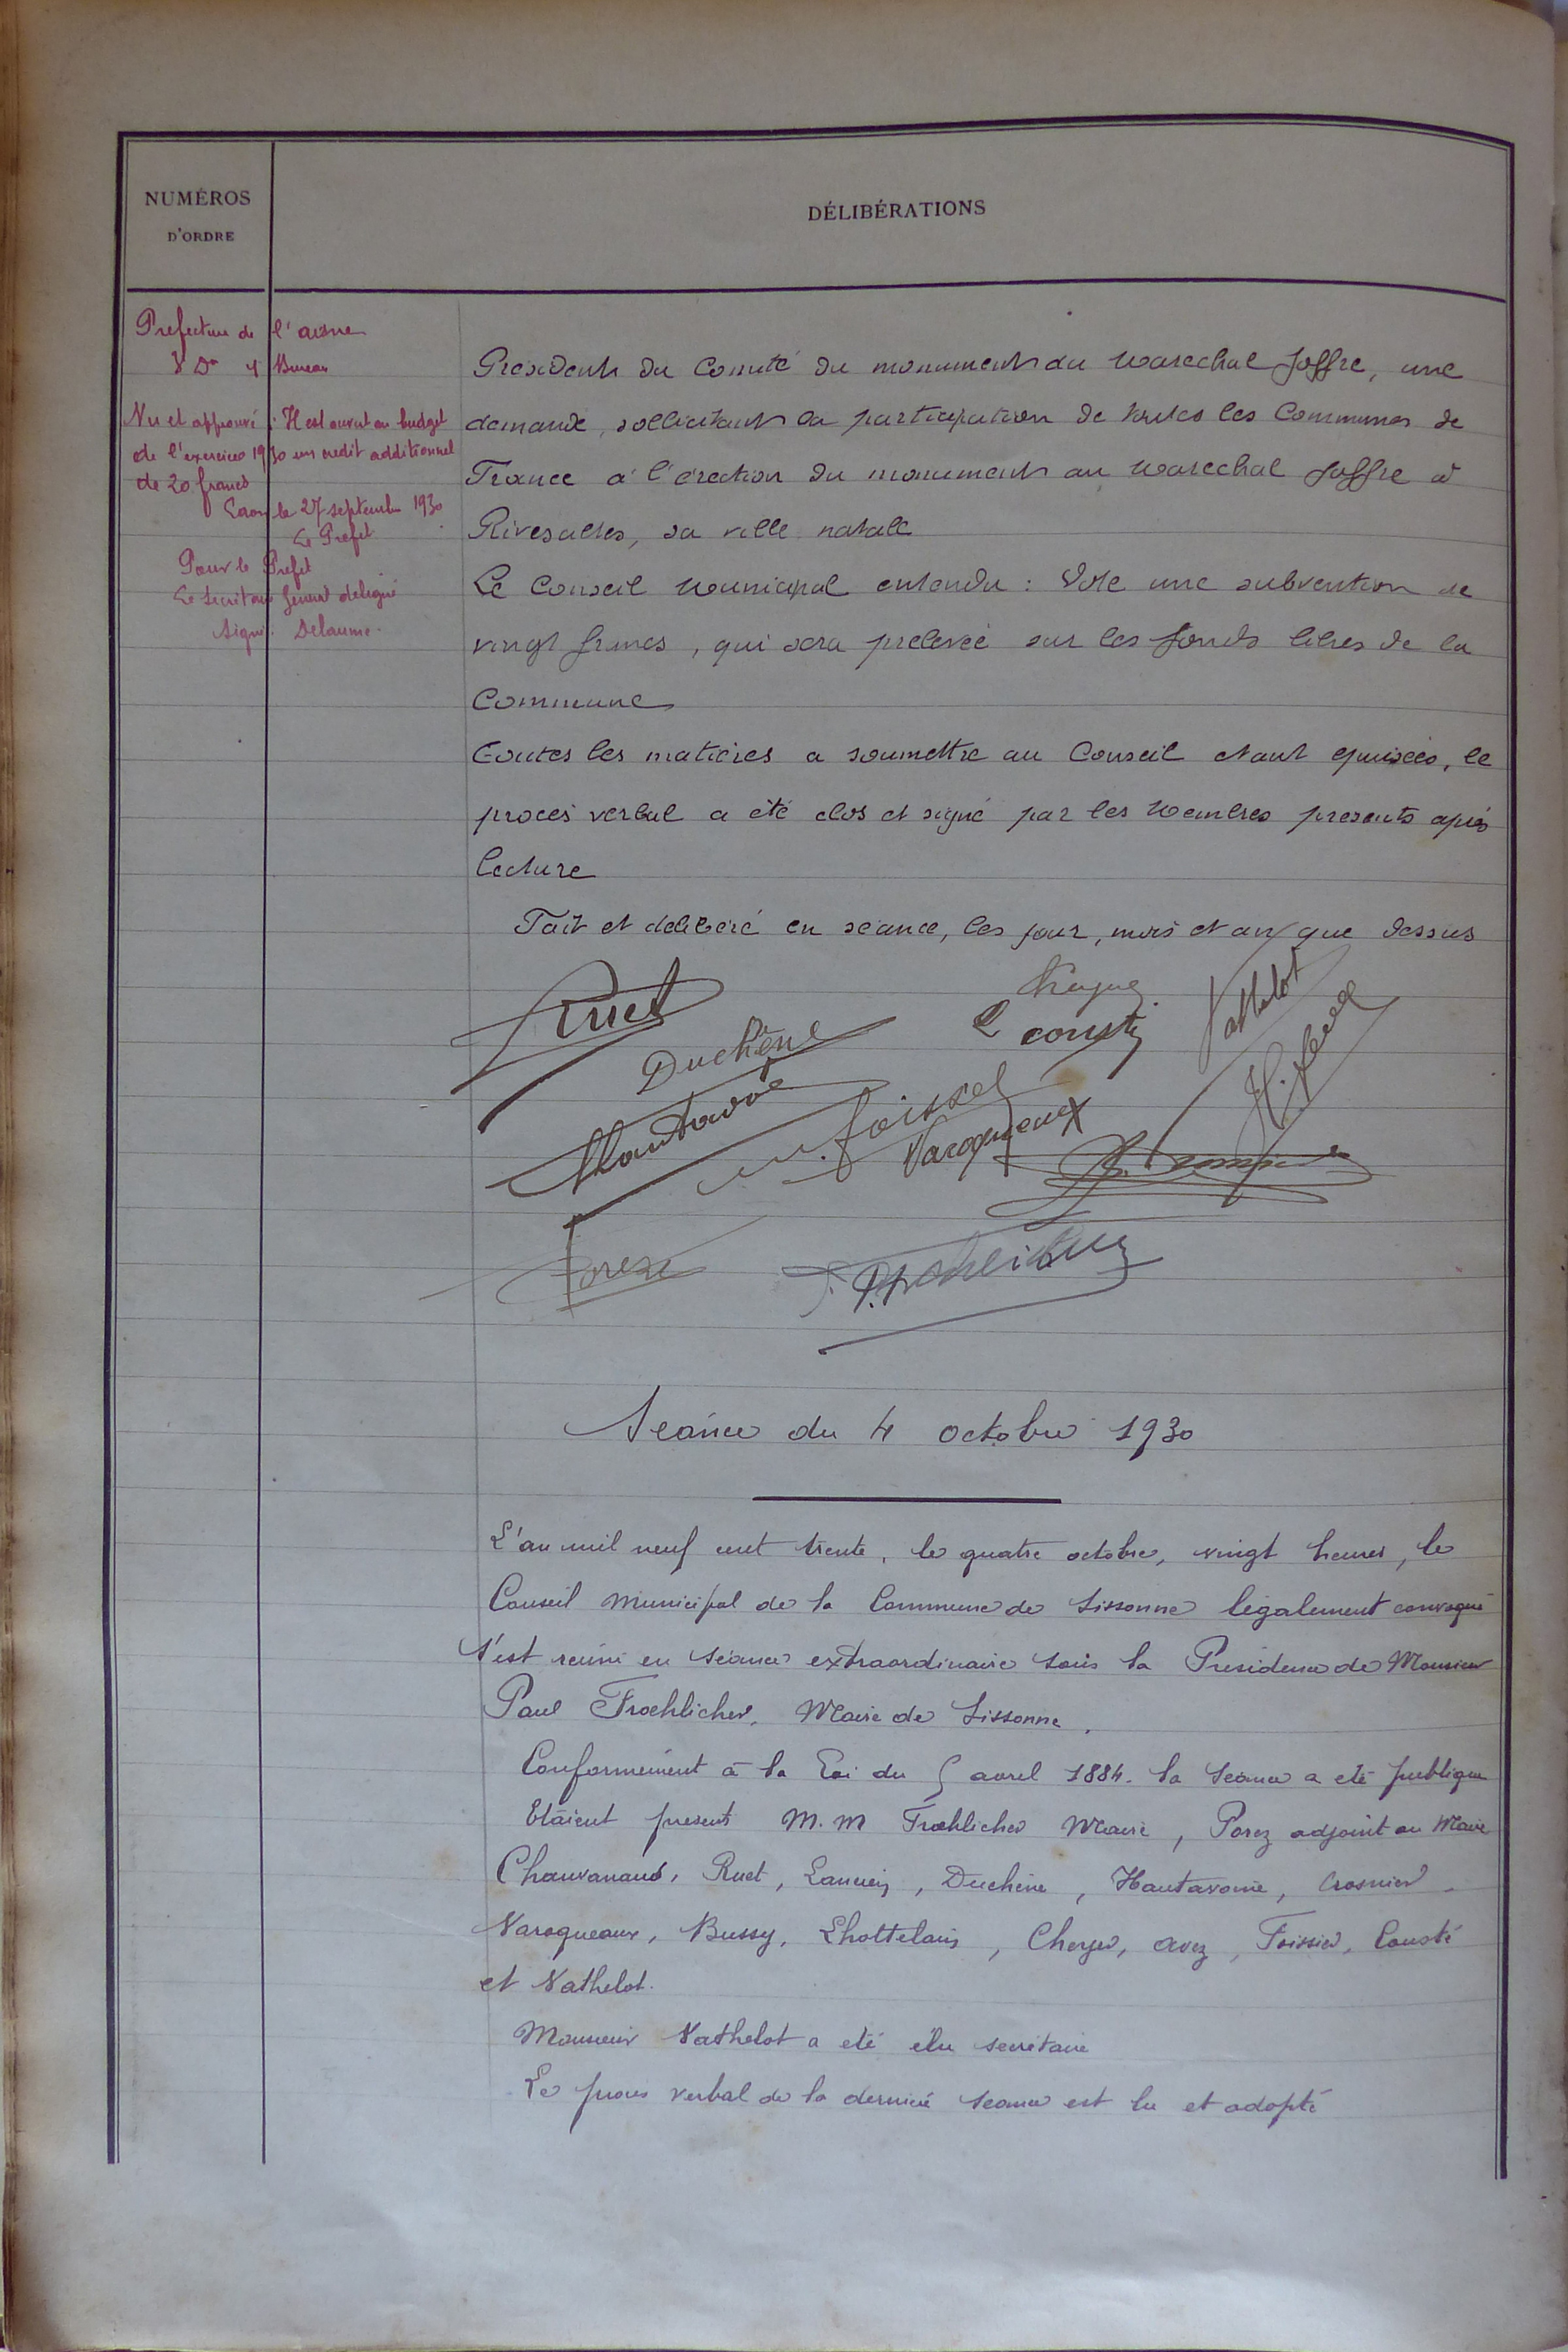 NUMÉROS
D'ORDRE
DÉLIBÉRATIONS
Prefecture de l'aisne
Bureau
Vu et approuvé : Il est ouvert au budget
de l'exercice 1930 un credit additionnel
de 20 francs
Laon le 27 septembre 1930
Le Prefet
Pour le Prefet
Le Secretaire General delegué
Signé : Delaume
Président du Comité du monument au Marechal Joffre, une
demande, sollicitant la participation de toutes les Communes de
France à l'érection du monument au Marechal Joffre à
Rivesaltes, sa ville natale
Le Conseil Municipal entendu : Vote une subvention de
vingt francs, qui sera prelevée sur les fonds libres de la
Commune
Toutes les matières a soumettre au Conseil étant epuisées, le
procès verbal a été clos et signé par les Membres presents après
lecture
Fait et deliberé en séance, les jour, mois et an que dessus
Ruet
Duchêne
L Cousté
Vathelot
Hautavoie
Varoqueaux
Porez
P. Froehlicher
Seance du 4 octobre 1930
L'an mil neuf cent trente, le quatre octobre, vingt heures, le
Conseil Municipal de la Commune de Sissonne légalement convoqué
s'est réuni en séance extraordinaire sous la Presidence de Monsieur
Paul Froehlicher, Maire de Sissonne.
Conformément à la Loi du 5 avril 1884. la Séance a eté publique
Etaient presents M.M Froehlicher Maire, Porez adjoint au Maire
Ruet, Duchêne, Hautavoine, Crosnier
Varoqueaux, Bussy, Lhottelain, Cheyer, Avez, Foissier, Cousté
et Vathelot.
Monsieur Vathelot a eté élu secrétaire
Le proces verbal de la derniere seance est lu et adopté